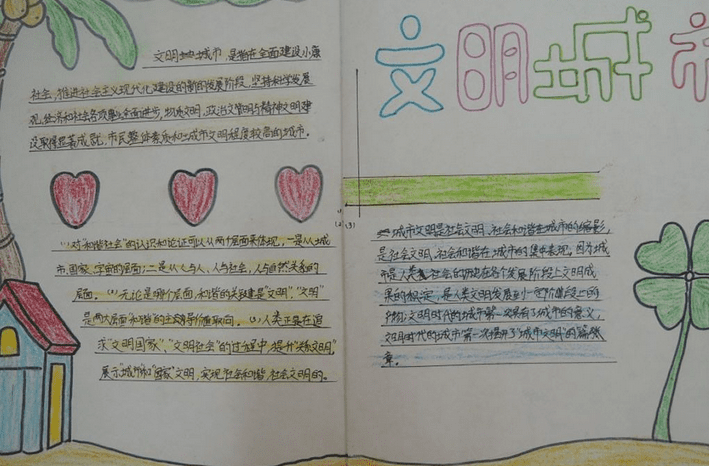 文明城市
文明城市,是指在全面建设小康
社会,推进社会主义现代化建设的新的发展阶段,坚持科学发展
观,经济和社会各项事业全面进步,物质文明,政治文明与精神文明建
设取得显著成就,市民整体素质和城市文明程度较高的城市。
(1)对"和谐社会"的认识和论证可以从两个层面来体现,一是从城
市、国家、宇宙的层面;二是从人与人、人与社会、人与自然关系的
层面。无论是哪个层面,和谐的关键是"文明","文明"
是两大层面和谐的主导价值取向。人类正要在追
求"文明国家"、"文明社会"的过程中,提升文明,
展示城市和"国家"文明,实现社会和谐,社会文明的。
城市文明是社会文明、社会和谐在城市的缩影,
是社会文明、社会和谐在城市的集中表现,因为城
市是人类社会的历史在各个发展阶段上文明成
果的积淀,是人类文明发展到一定阶段上的
产物;文明时代的城市第一次具有了城市的意义,
文明时代的城市第一次揭开了"城市文明"的篇
章。